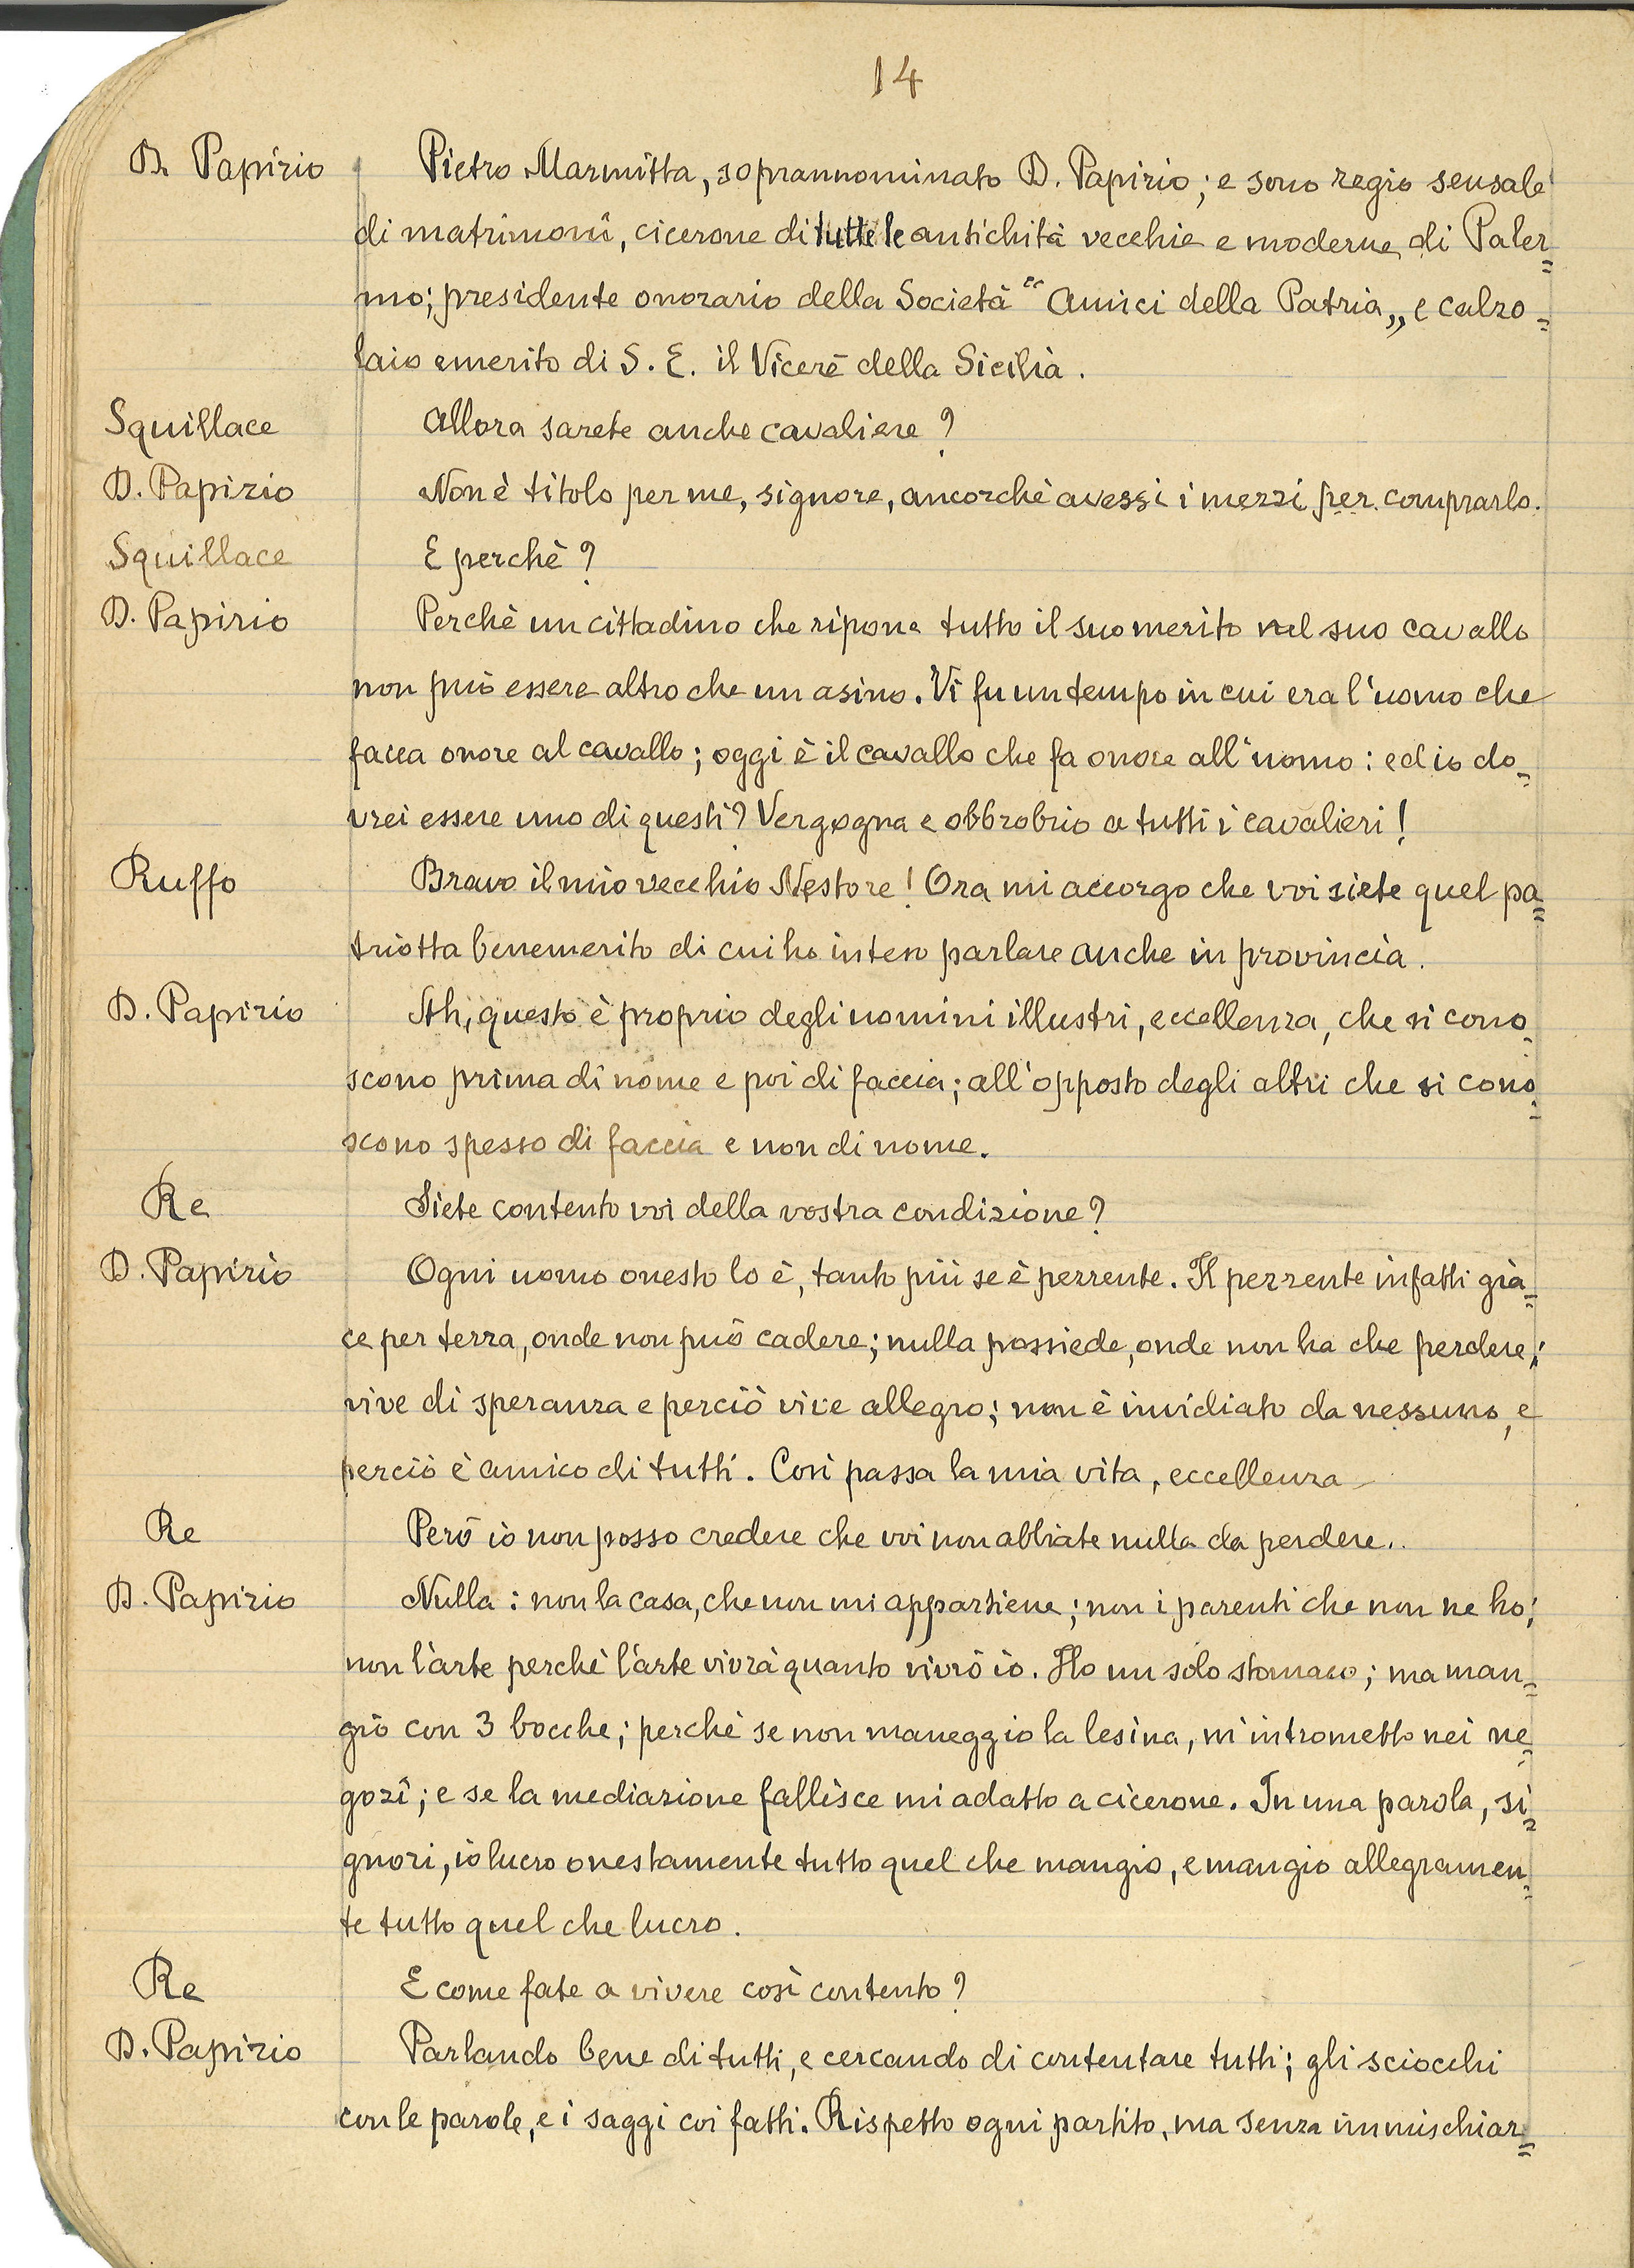 14
D. Papirio Pietro Marmitta, soprannominato D. Papirio; e sono regio sensale
di matrimonî, cicerone di tutte le antichità vecchie e moderne di Paler=
mo; presidente onorario della Società "Amici della Patria„ e calzo=
laio emerito di S. E. il Vicerè della Sicilia.
Squillace Allora sarete anche cavaliere?
D. Papirio Non è titolo per me, signore, ancorchè avessi i mezzi per comprarlo.
Squillace E perchè?
D. Papirio Perchè un cittadino che ripone tutto il suo merito nel suo cavallo
non può essere altro che un asino. Vi fu un tempo in cui era l'uomo che
facea onore al cavallo; oggi è il cavallo che fa onore all'uomo: ed io do=
vrei essere uno di questi? Vergogna e obbrobrio a tutti i cavalieri!
Ruffo Bravo il mio vecchio Nestore! Ora mi accorgo che voi siete quel pa=
triotta benemerito di cui ho inteso parlare anche in provincia.
D. Papirio Ah, questo è proprio degli uomini illustri, eccellenza, che si cono=
scono prima di nome e poi di faccia; all'opposto degli altri che si cono=
scono spesso di faccia e non di nome.
Re Siete contento voi della vostra condizione?
D. Papirio Ogni uomo onesto lo è, tanto più se è pezzente. Il pezzente infatti gia=
ce per terra, onde non può cadere; nulla possiede, onde non ha che perdere;
vive di speranza e perciò vive allegro; non è invidiato da nessuno, e
perciò è amico di tutti. Così passa la mia vita, eccellenza
Re Però io non posso credere che voi non abbiate nulla da perdere..
D. Papirio Nulla: non la casa, che non mi appartiene; non i parenti che non ne ho;
non l'arte perchè l'arte vivrà quanto vivrò io. Ho un solo stomaco; ma man=
gio con 3 bocche; perchè se non maneggio la lesina, m'intrometto nei ne=
gozî; e se la mediazione fallisce mi adatto a cicerone. In una parola, si=
gnori, io lucro onestamente tutto quel che mangio, e mangio allegramen=
te tutto quel che lucro.
Re E come fate a vivere così contento?
D. Papirio Parlando bene di tutti, e cercando di contentare tutti; gli sciocchi
con le parole, e i saggi coi fatti. Rispetto ogni partito, ma senza immischiar=